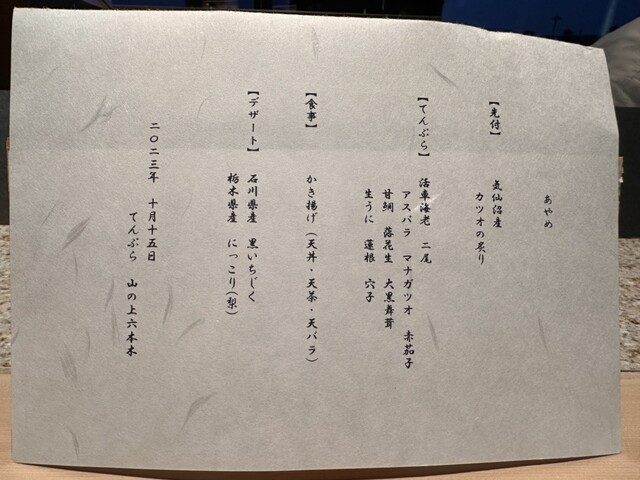 あやめ
【先付】
気仙沼産
カツオの炙り
【てんぷら】
活車海老 二尾
アスパラ マナガツオ 赤茄子
甘鯛 落花生 大黒舞茸
生うに 蓮根 穴子
【食事】
かき揚げ(天丼・天茶・天バラ)
【デザート】
石川県産 黒いちじく
栃木県産 にっこり(梨)
二〇二三年 十月十五日
てんぷら 山の上六本木